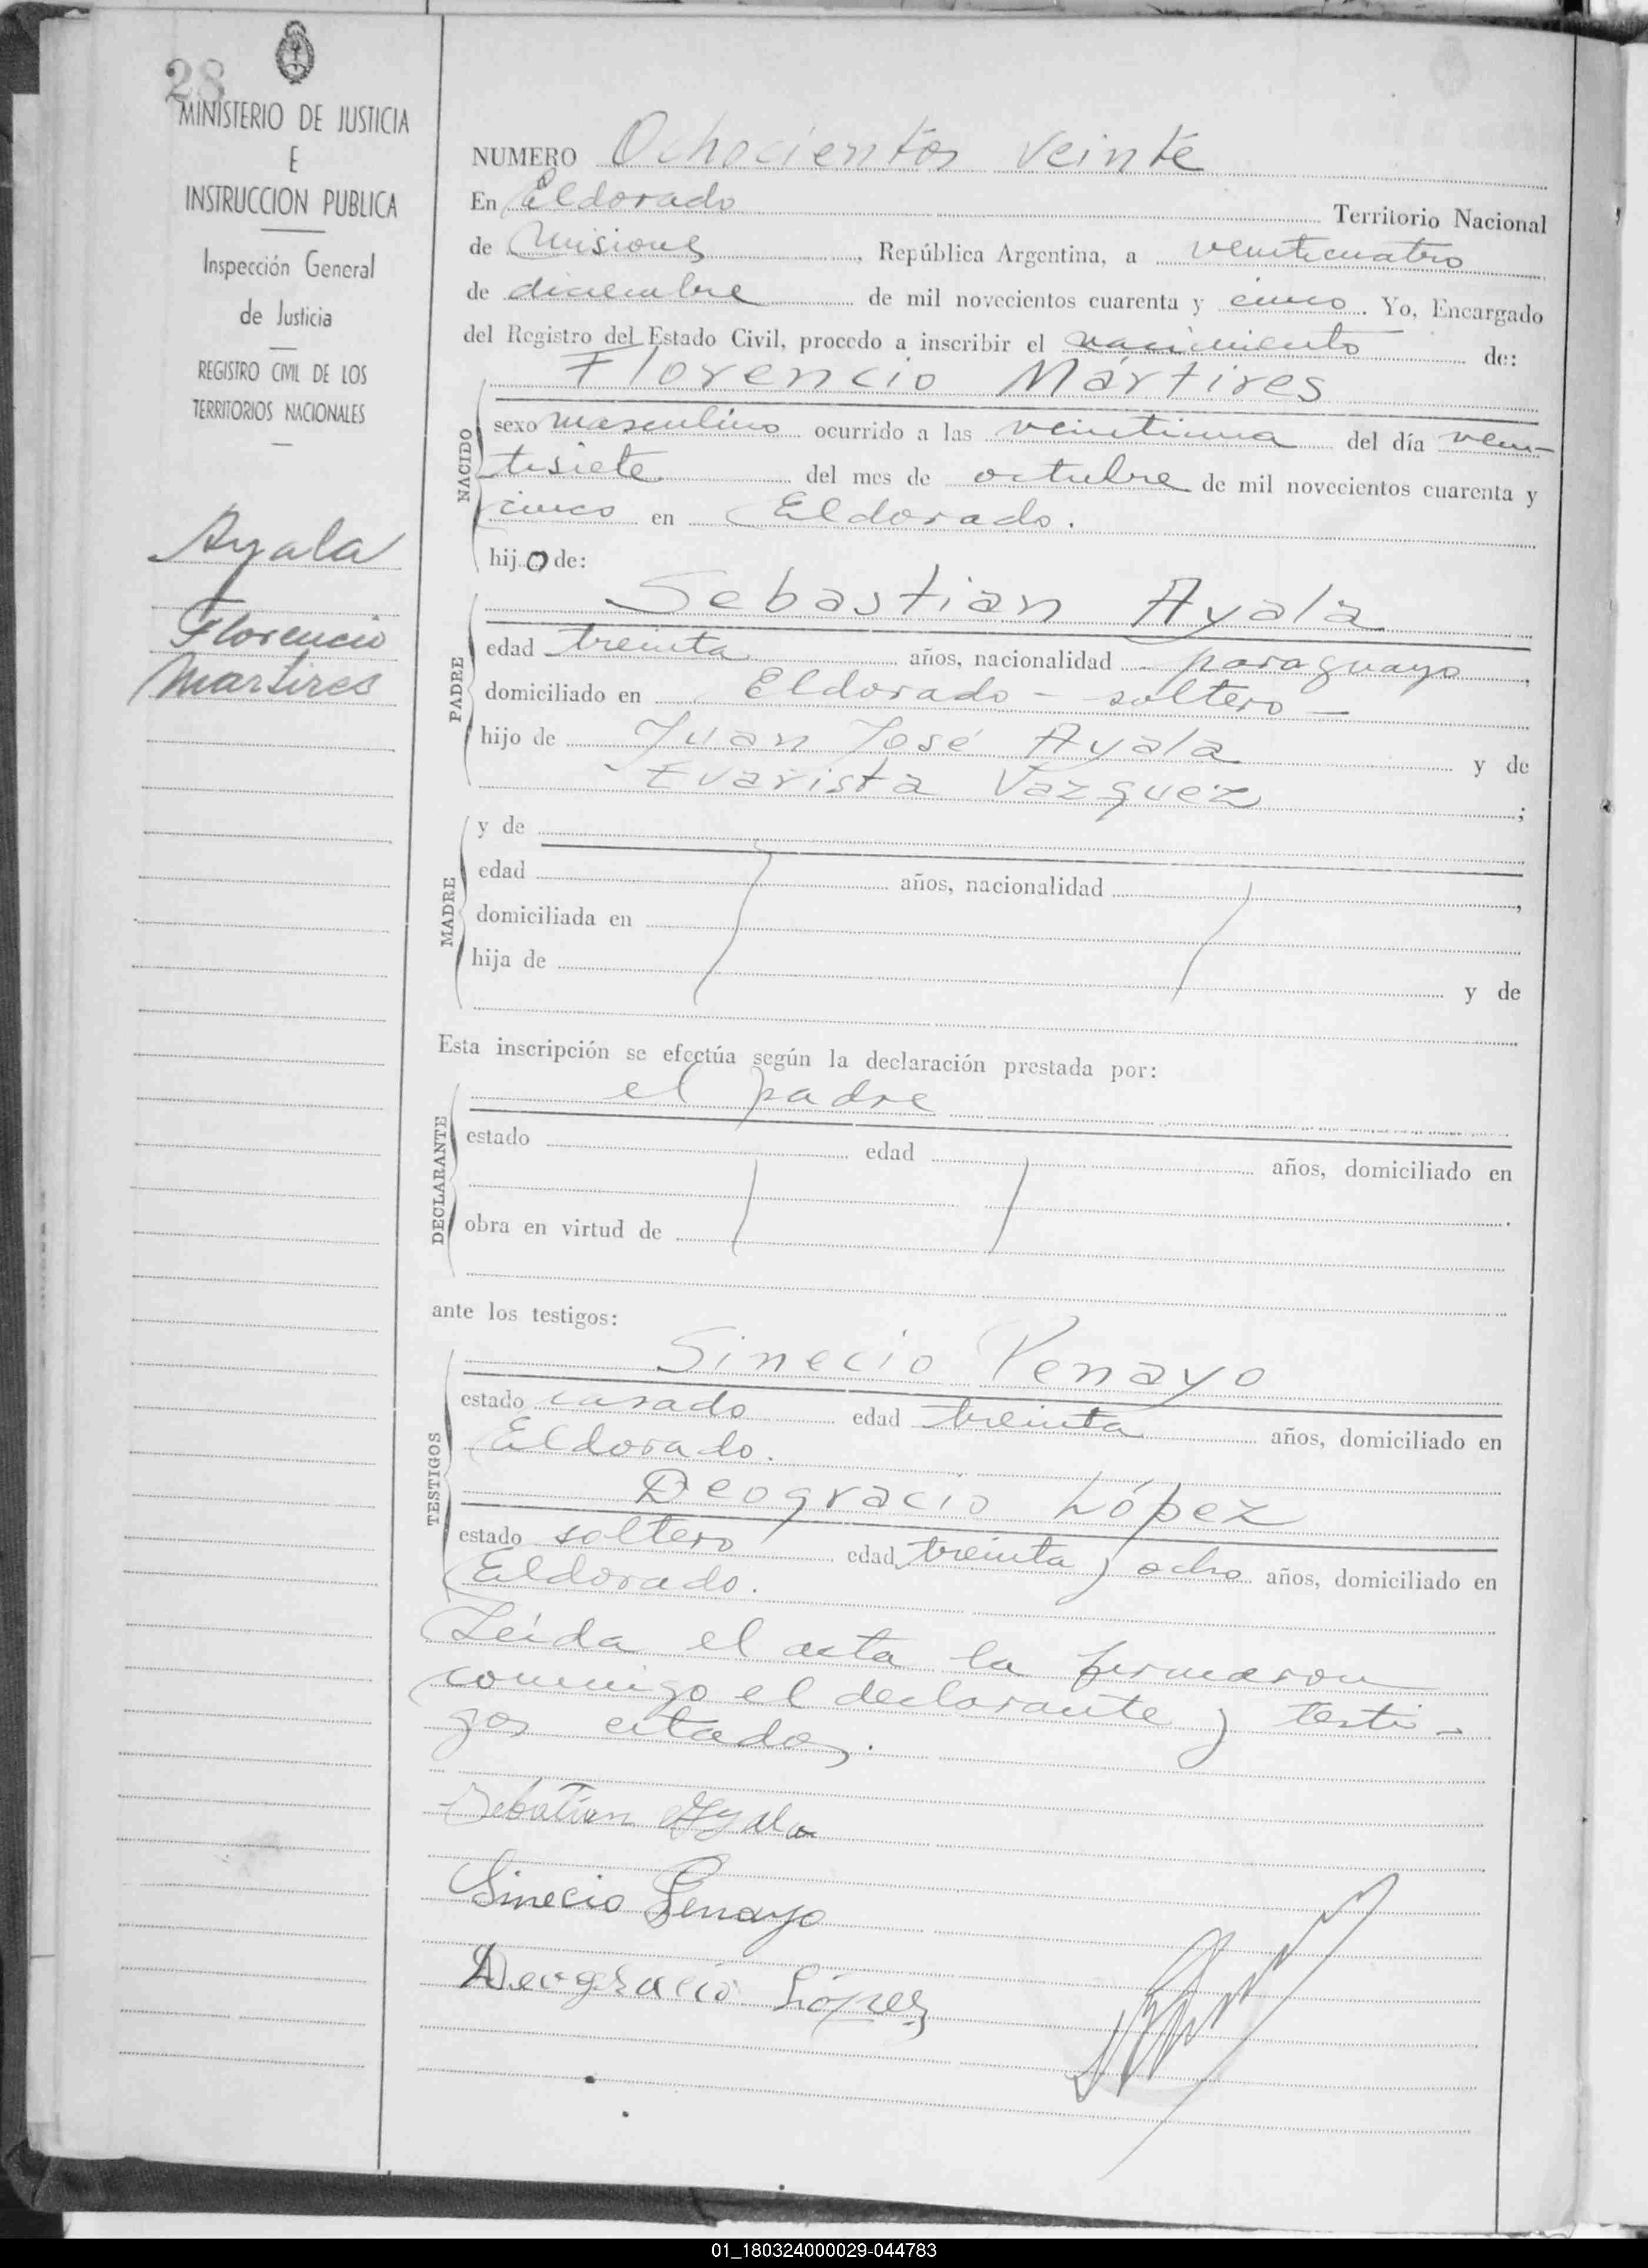 28
MINISTERIO DE JUSTICIA
E
INSTRUCCION PUBLICA
Inspección General
de Justicia
REGISTRO CIVIL DE LOS
TERRITORIOS NACIONALES
Ayala
Florencio
Martires
NUMERO Ochocientos veinte
En Eldorado Territorio Nacional
de Misiones, República Argentina, a veinticuatro
de diciembre de mil novecientos cuarenta y cinco. Yo, Encargado
del Registro del Estado Civil, procedo a inscribir el nacimiento de:
Florencio Mártires
NACIDO
sexo masculino ocurrido a las veintiuna del día vein-
tisiete del mes de octubre de mil novecientos cuarenta y
cinco en Eldorado.
hijo de:
Sebastian Ayala
PADRE
edad treinta años, nacionalidad paraguayo,
domiciliado en Eldorado - soltero -
hijo de Juan José Ayala y de
Evarista Vazquez;
MADRE
y de
edad años, nacionalidad,
domiciliada en
hija de y de
Esta inscripción se efectúa según la declaración prestada por:
el padre
DECLARANTE
estado edad años, domiciliado en
obra en virtud de
ante los testigos:
Sinecio Penayo
TESTIGOS
estado casado edad treinta años, domiciliado en
Eldorado.
Deogracio López
estado soltero edad treinta y ocho años, domiciliado en
Eldorado.
Leída el acta la firmaron
conmigo el declarante y testi-
gos citados.
Sebatian Ayala
Sinecio Penayo
Deogracio López
01_180324000029-044783